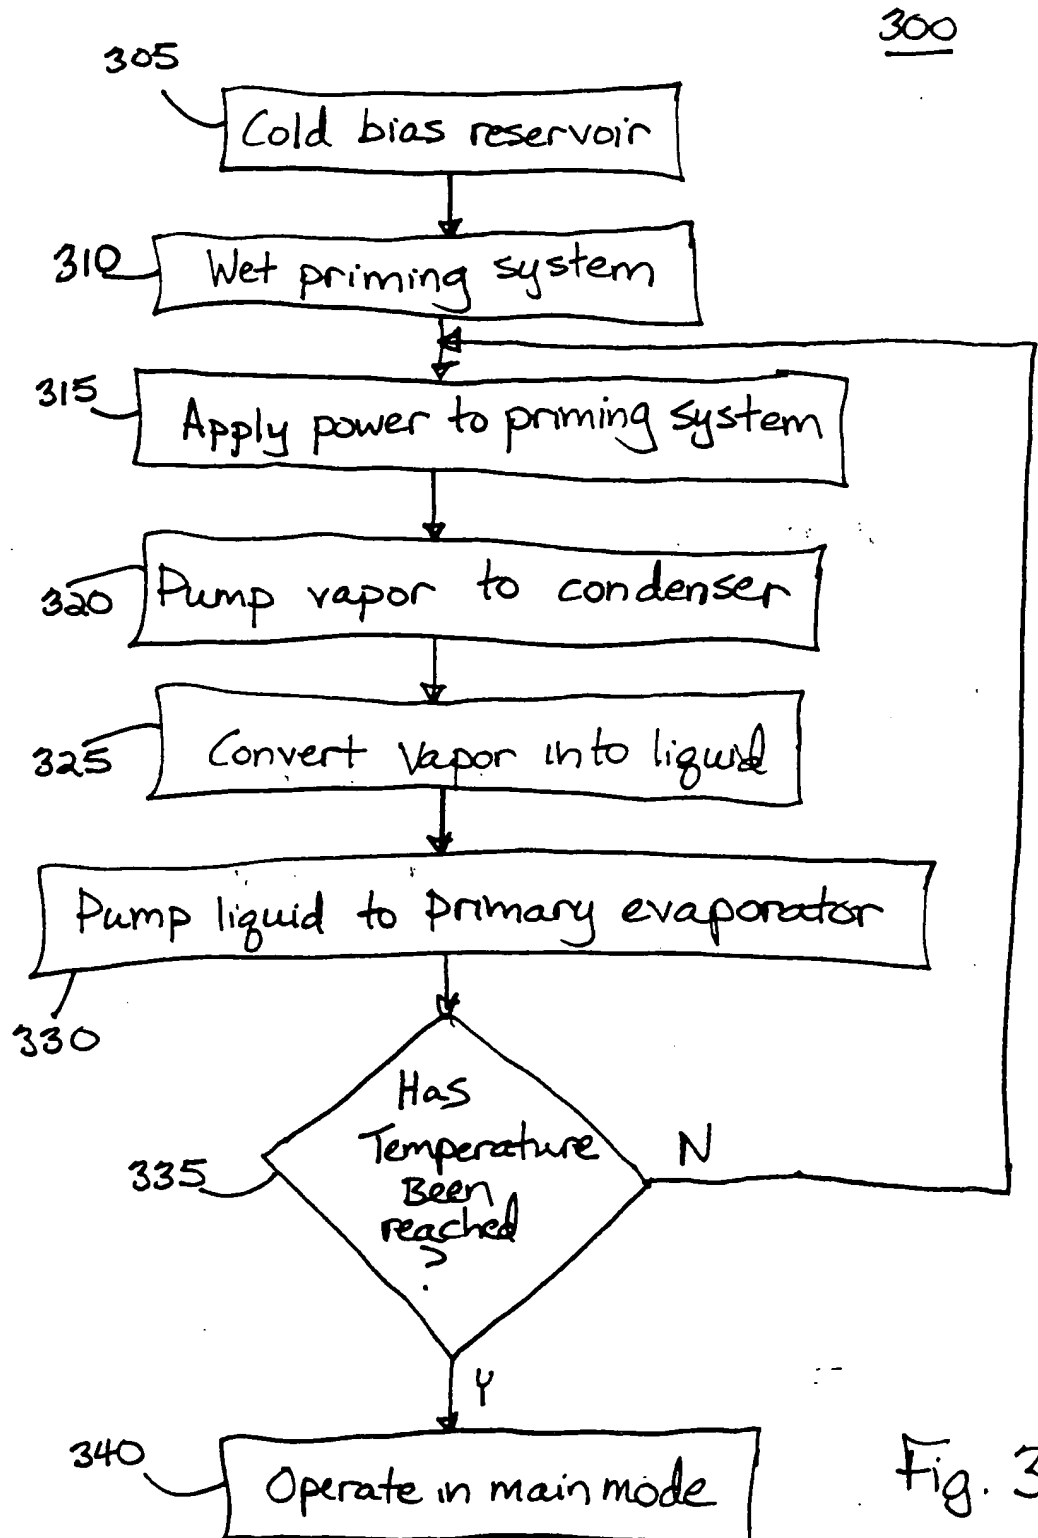 300
305
Cold bias reservoir
310
Wet priming system
315
Apply power to priming system
320
Pump vapor to condenser
325
Convert vapor into liquid
Pump liquid to primary evaporator
330
Has
Temperature
Been
reached
?
N
335
Y
340
Operate in main mode
Fig. 3